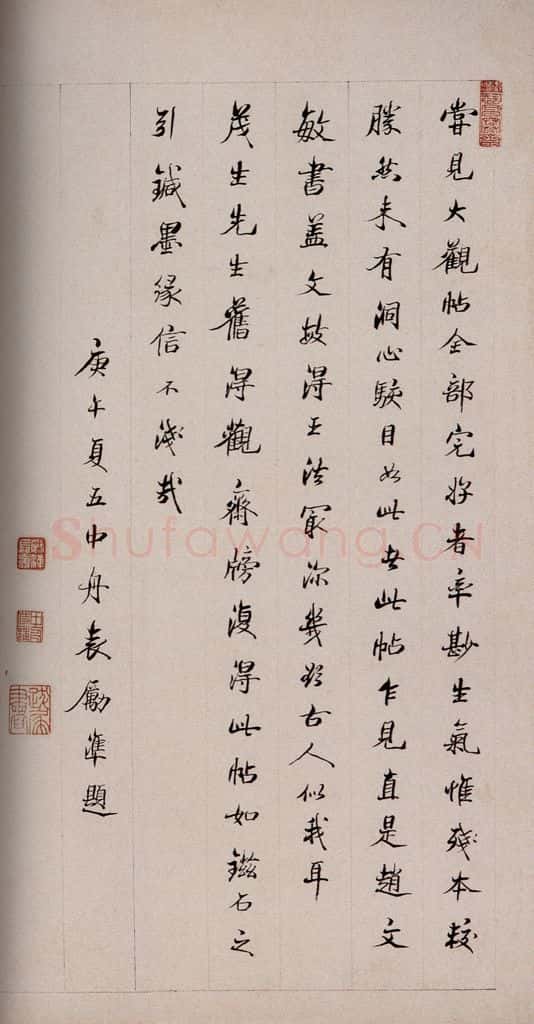 嘗見大觀帖全部完好者率尠生氣惟殘本較
勝然未有洞心駭目如此者此帖乍見直是趙文
敏書蓋文敏得王法最深幾欲古人似我耳
茂生先生舊得觀齋牓復得此帖如鎡石之
引鍼墨緣信不淺哉
庚午夏五中舟袁勵準題
Shufawang.CN